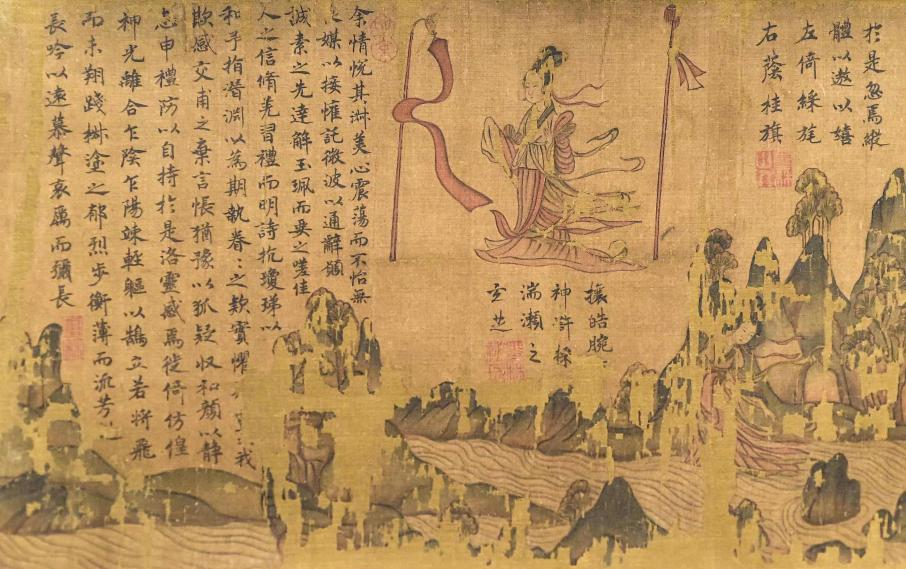 於是忽焉縱
體以遨以嬉
左倚綵旄
右蔭桂旗
攘皓腕
神滸採
湍瀨之
玄芝
余情悅其淑美心震蕩而不怡無
媒以接懽託微波以通辭願
誠素之先達解玉珮而要之嗟佳
人之信脩羌習禮而明詩抗瓊珶以
和予指潛淵以為期執眷〻之款實懼我
欺感交甫之棄言悵猶豫以狐疑収和顏以靜
志申禮防以自持於是洛靈感焉徙倚仿偟
神光離合乍陰乍陽竦輕軀以鵠立若將飛
而未翔踐椒塗之郁烈步衡薄而流芳
長吟以遠慕聲哀厲而彌長